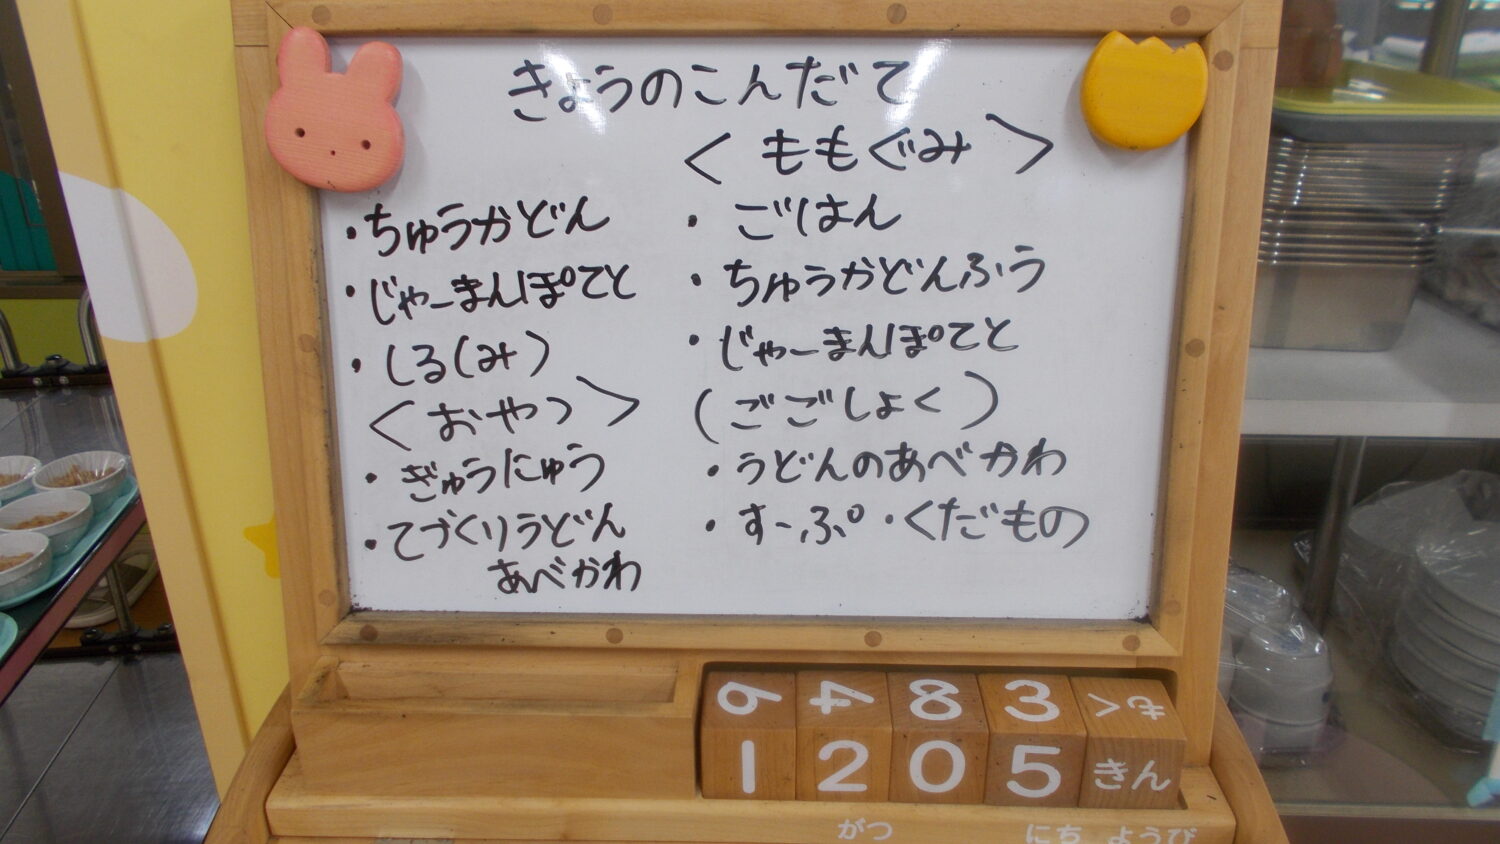 きょうのこんだて
・ちゅうかどん
・じゃーまんぽてと
・しる(み)
＜おやつ＞
・ぎゅうにゅう
・てづくりうどん
あべかわ
＜ももぐみ＞
・ごはん
・ちゅうかどんふう
・じゃーまんぽてと
(ごごしょく)
・うどんのあべかわ
・すーぷ・くだもの
6 4 8 3 もく
1 2 0 5 きん
がつ にち ようび